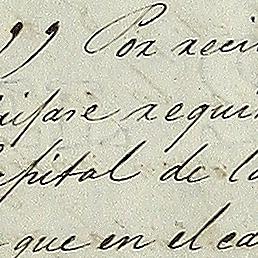 Por reci
uifase requi
apital de la
que en el ca